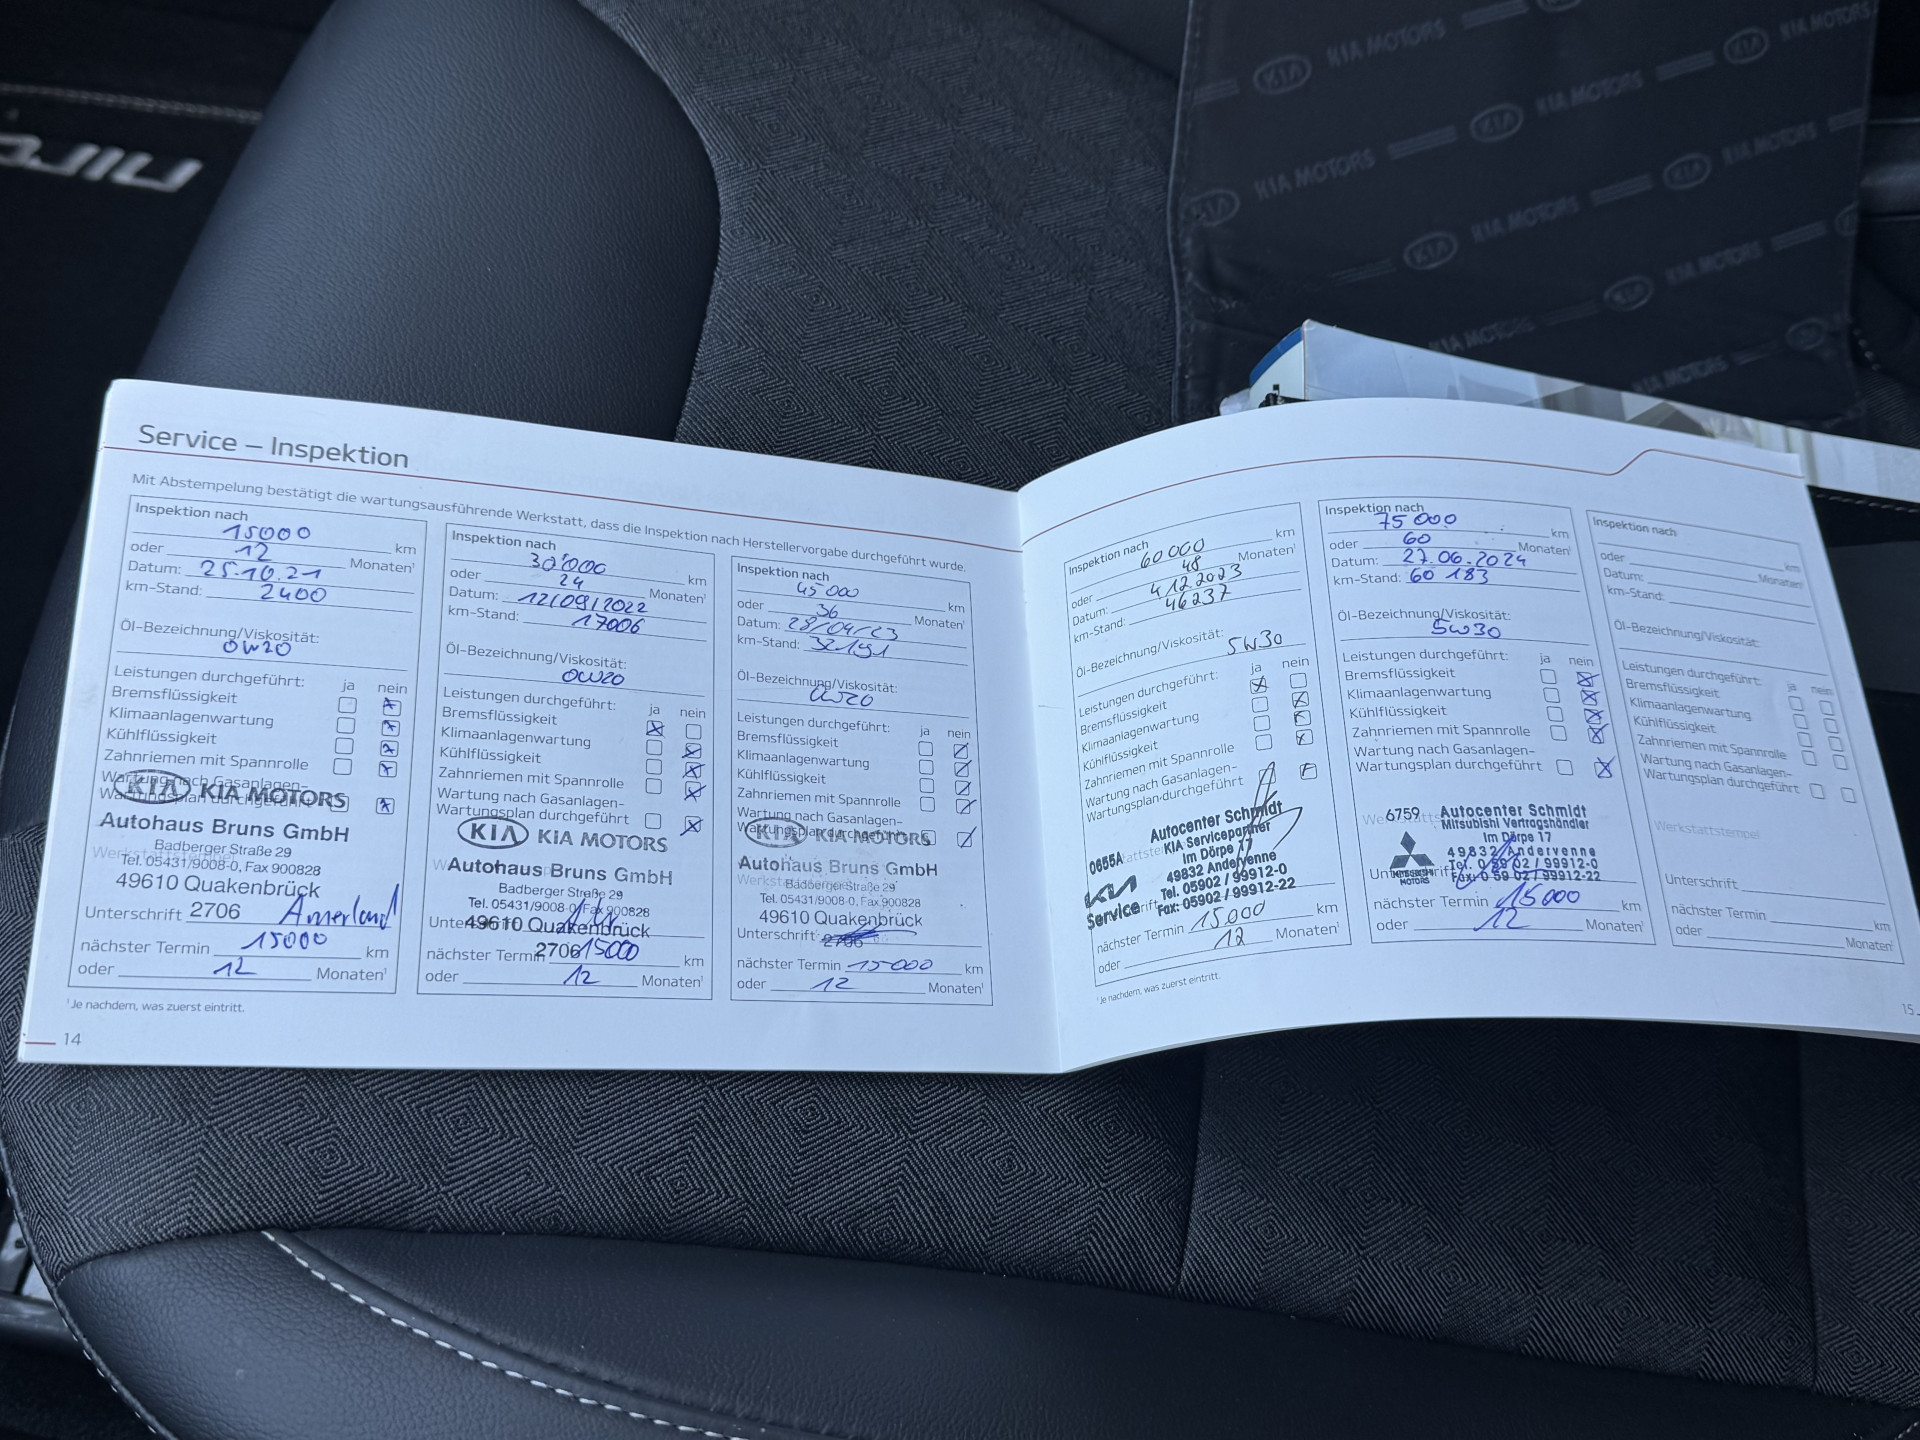 KIA MOTORS
KIA MOTORS
KIA MOTORS
KIA MOTORS
KIA MOTORS
KIA MOTORS
KIA MOTORS
KIA MOTORS
niro
Service – Inspektion
Mit Abstempelung bestätigt die wartungsausführende Werkstatt, dass die Inspektion nach Herstellervorgabe durchgeführt wurde.
Inspektion nach
15000 km
oder 12 Monaten¹
Datum: 25.10.21
km-Stand: 2400
Öl-Bezeichnung/Viskosität:
0W20
Leistungen durchgeführt: ja nein
Bremsflüssigkeit
Klimaanlagenwartung
Kühlflüssigkeit
Zahnriemen mit Spannrolle
Wartung nach Gasanlagen-
Wartungsplan durchgeführt
KIA KIA MOTORS
Autohaus Bruns GmbH
Badberger Straße 29
Tel. 05431/9008-0, Fax 900828
49610 Quakenbrück
Unterschrift 2706
nächster Termin 15000 km
oder 12 Monaten¹
Inspektion nach
30'000 km
oder 24 Monaten¹
Datum: 12/09/2022
km-Stand: 17006
Öl-Bezeichnung/Viskosität:
0W20
Leistungen durchgeführt: ja nein
Bremsflüssigkeit
Klimaanlagenwartung
Kühlflüssigkeit
Zahnriemen mit Spannrolle
Wartung nach Gasanlagen-
Wartungsplan durchgeführt
KIA KIA MOTORS
Autohaus Bruns GmbH
Badberger Straße 29
Tel. 05431/9008-0, Fax 900828
49610 Quakenbrück
2706
nächster Termin 15000 km
oder 12 Monaten¹
Inspektion nach
45000 km
oder 36 Monaten¹
Datum: 28/04/23
km-Stand: 32191
Öl-Bezeichnung/Viskosität:
0W20
Leistungen durchgeführt: ja nein
Bremsflüssigkeit
Klimaanlagenwartung
Kühlflüssigkeit
Zahnriemen mit Spannrolle
Wartung nach Gasanlagen-
Wartungsplan durchgeführt
KIA KIA MOTORS
Autohaus Bruns GmbH
Badberger Straße 29
Tel. 05431/9008-0, Fax 900828
49610 Quakenbrück
Unterschrift 2706
nächster Termin 15000 km
oder 12 Monaten¹
¹Je nachdem, was zuerst eintritt.
14
Inspektion nach
60000 km
oder 48 Monaten¹
Datum: 4.12.2023
km-Stand: 46237
Öl-Bezeichnung/Viskosität:
5W30
Leistungen durchgeführt: ja nein
Bremsflüssigkeit
Klimaanlagenwartung
Kühlflüssigkeit
Zahnriemen mit Spannrolle
Wartung nach Gasanlagen-
Wartungsplan durchgeführt
0655A
KIA
Service
Autocenter Schmidt
KIA Servicepartner
Im Dörpe 17
49832 Andervenne
Tel. 05902 / 99912-0
Fax: 05902 / 99912-22
nächster Termin 15.000 km
oder 12 Monaten¹
¹Je nachdem, was zuerst eintritt.
Inspektion nach
75000 km
oder 60 Monaten¹
Datum: 27.06.2024
km-Stand: 60 183
Öl-Bezeichnung/Viskosität:
5W30
Leistungen durchgeführt: ja nein
Bremsflüssigkeit
Klimaanlagenwartung
Kühlflüssigkeit
Zahnriemen mit Spannrolle
Wartung nach Gasanlagen-
Wartungsplan durchgeführt
6759
MITSUBISHI
MOTORS
Autocenter Schmidt
Mitsubishi Vertragshändler
Im Dörpe 17
49832 Andervenne
Tel. 0 59 02 / 99912-0
Fax: 0 59 02 / 99912-22
nächster Termin 15000 km
oder 12 Monaten¹
Inspektion nach
km
oder Monaten¹
Datum:
km-Stand:
Öl-Bezeichnung/Viskosität:
Leistungen durchgeführt: ja nein
Bremsflüssigkeit
Klimaanlagenwartung
Kühlflüssigkeit
Zahnriemen mit Spannrolle
Wartung nach Gasanlagen-
Wartungsplan durchgeführt
Werkstattstempel
Unterschrift
nächster Termin km
oder Monaten¹
15